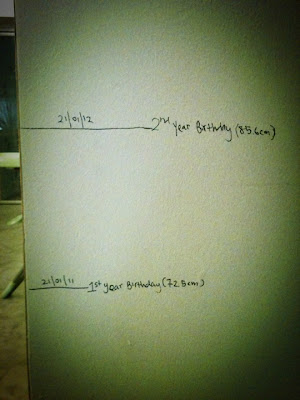 21/01/12
2nd year Birthday (85.6cm)
21/01/11
1st year Birthday (72.5cm)